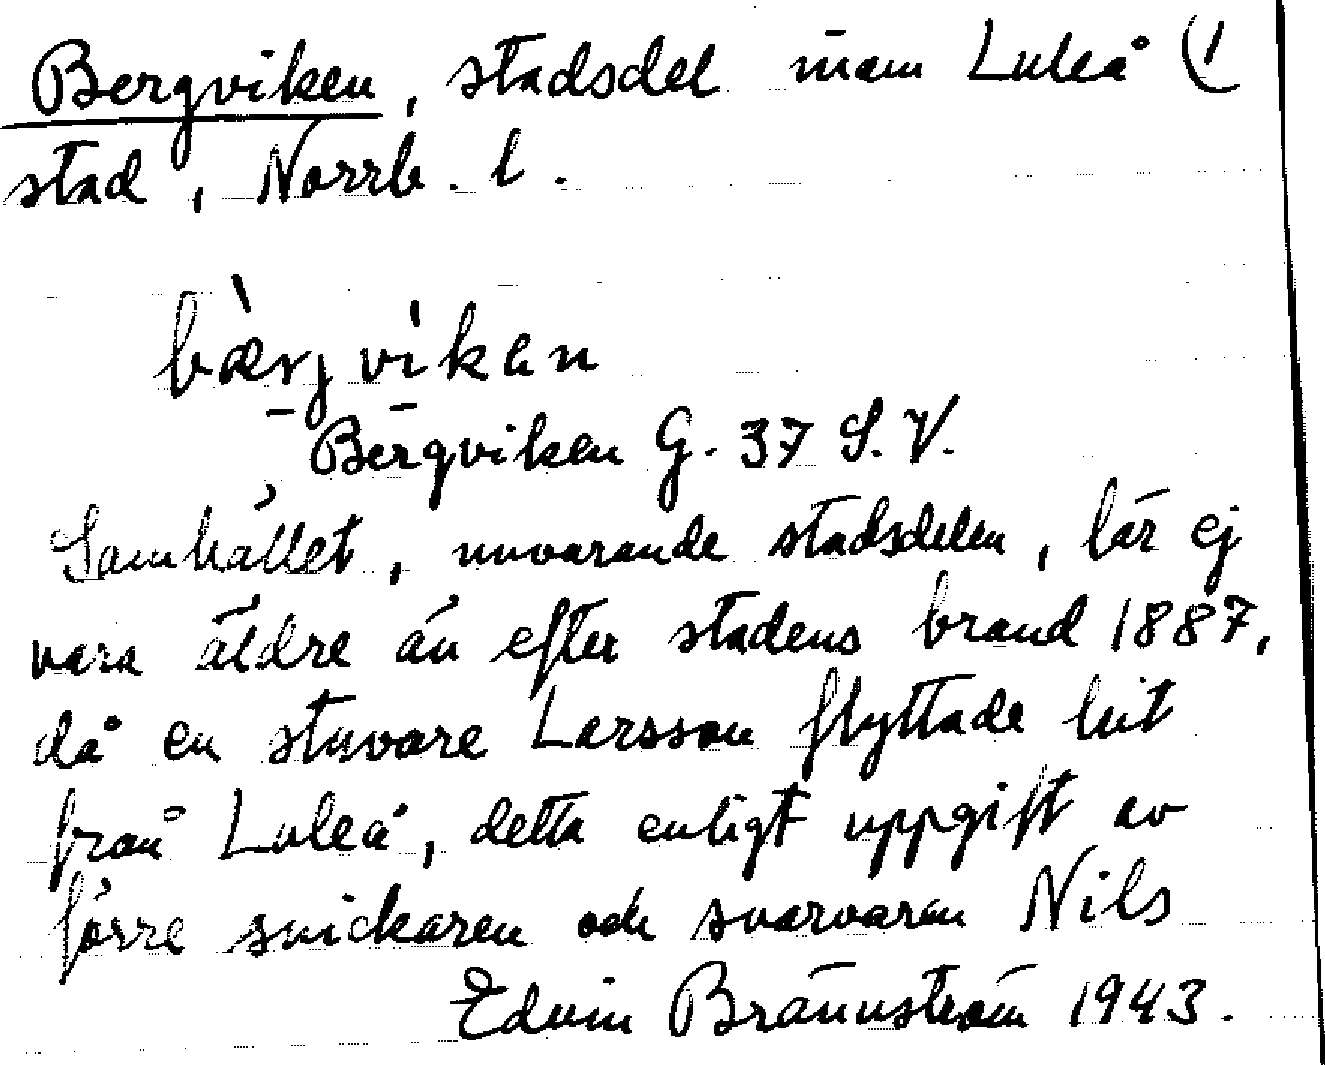 Bergviken, stadsdel inom Luleå (1
stad, Norrb. l.
bæ̀rjvìken
Bergviken G. 37 S. V.
Samhället, nuvarande stadsdelen, lär ej
vara äldre än efter stadens brand 1887,
då en stuvare Larsson flyttade hit
från Luleå, detta enligt uppgift av
förre snickaren och svarvaren Nils
Edvin Brännström 1943.